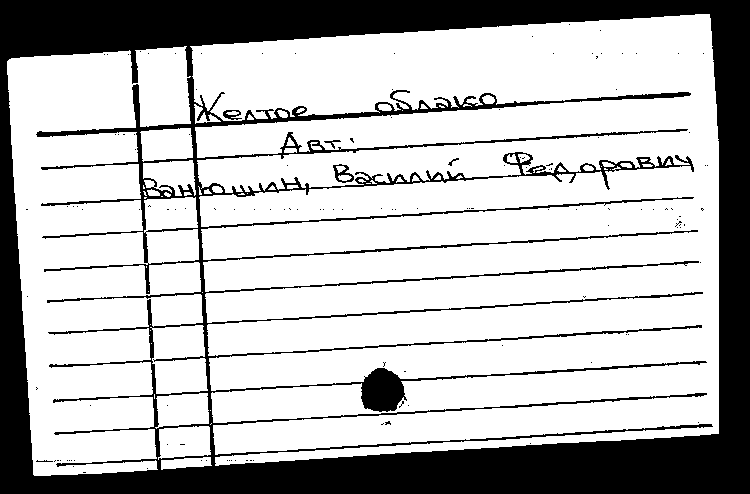 Желтое облако
Авт.:
Ванюшин, Василий Федорович